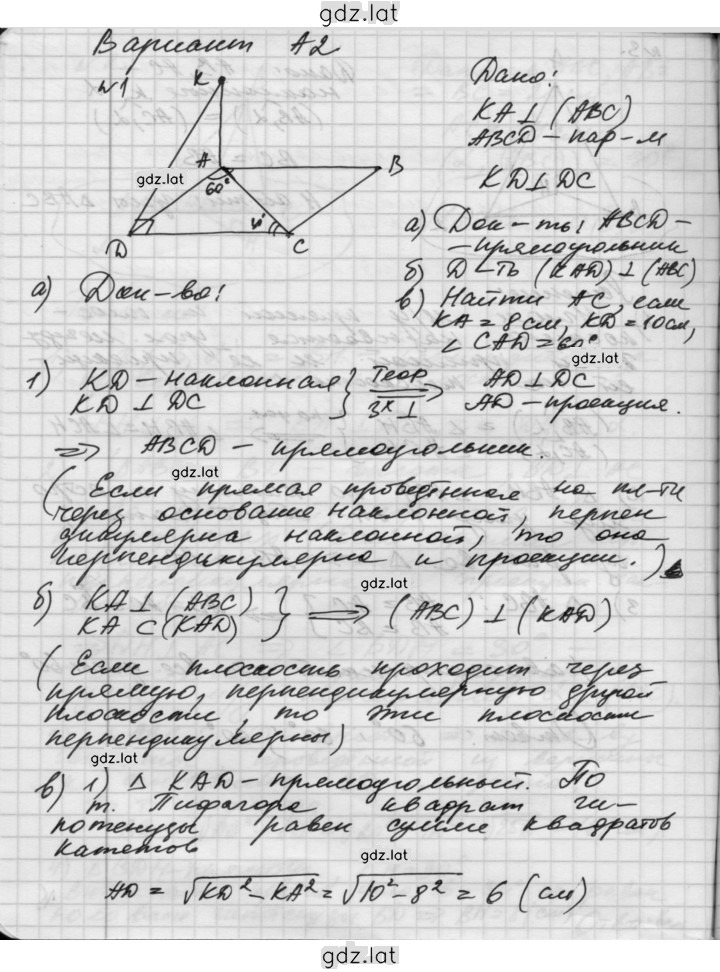 gdz.lat
Вариант А2
№1
K
A
B
gdz.lat
60°
D
C
Дано:
KA ⊥ (ABC)
ABCD – пар-м
KD ⊥ DC
а) Док-ть: ABCD –
– прямоугольник
б) Д-ть (KAD) ⊥ (ABC)
в) Найти AC, если
KA = 8 см, KD = 10 см,
∠ CAD = 60°
gdz.lat
а) Док-во:
1) KD – наклонная
KD ⊥ DC
теор
3х ⊥
⇒ AD ⊥ DC
AD – проекция.
⇒ ABCD – прямоугольник.
gdz.lat
(Если прямая проведённая на пл-ти
через основание наклонной, перпен
дикулярна наклонной, то она
перпендикулярна и проекции.)
gdz.lat
б) KA ⊥ (ABC)
KA ⊂ (KAD)
⇒ (ABC) ⊥ (KAD)
(Если плоскость проходит через
прямую, перпендикулярную другой
плоскости, то эти плоскости
перпендикулярны)
gdz.lat
в) 1) Δ KAD – прямоугольный. По
т. Пифагора квадрат ги-
потенузы равен сумме квадратов
катетов
gdz.lat
AD = √KD² – KA² = √10² – 8² = 6 (см)
gdz.lat